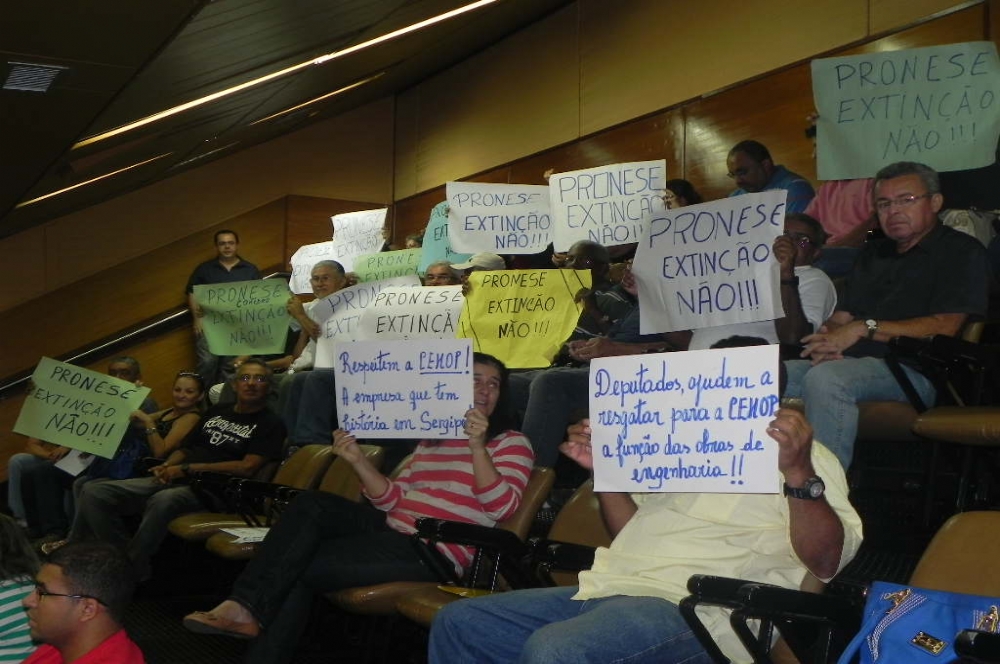 PRONESE
EXTINÇÃO
NÃO!!!
PRONESE
EXTINÇÃO
NÃO!!!
PRONESE
EXTINÇÃO
NÃO!!!
PRONESE
EXTINÇÃO
NÃO!!!
PRONESE
PRONESE
EXTINÇÃO
NÃO!!!
PRONESE
EXTINÇÃO
NÃO!!!
PRONESE
EXTINÇÃO
PRONESE
EXTINÇÃO
NÃO!!!
PRONESE
EXTINÇÃO
NÃO!!!
Respeitem a CEHOP!
A empresa que tem
história em Sergipe
Deputados, ajudem a
resgatar para a CEHOP
a função das obras de
engenharia!!
Aeropostal
87